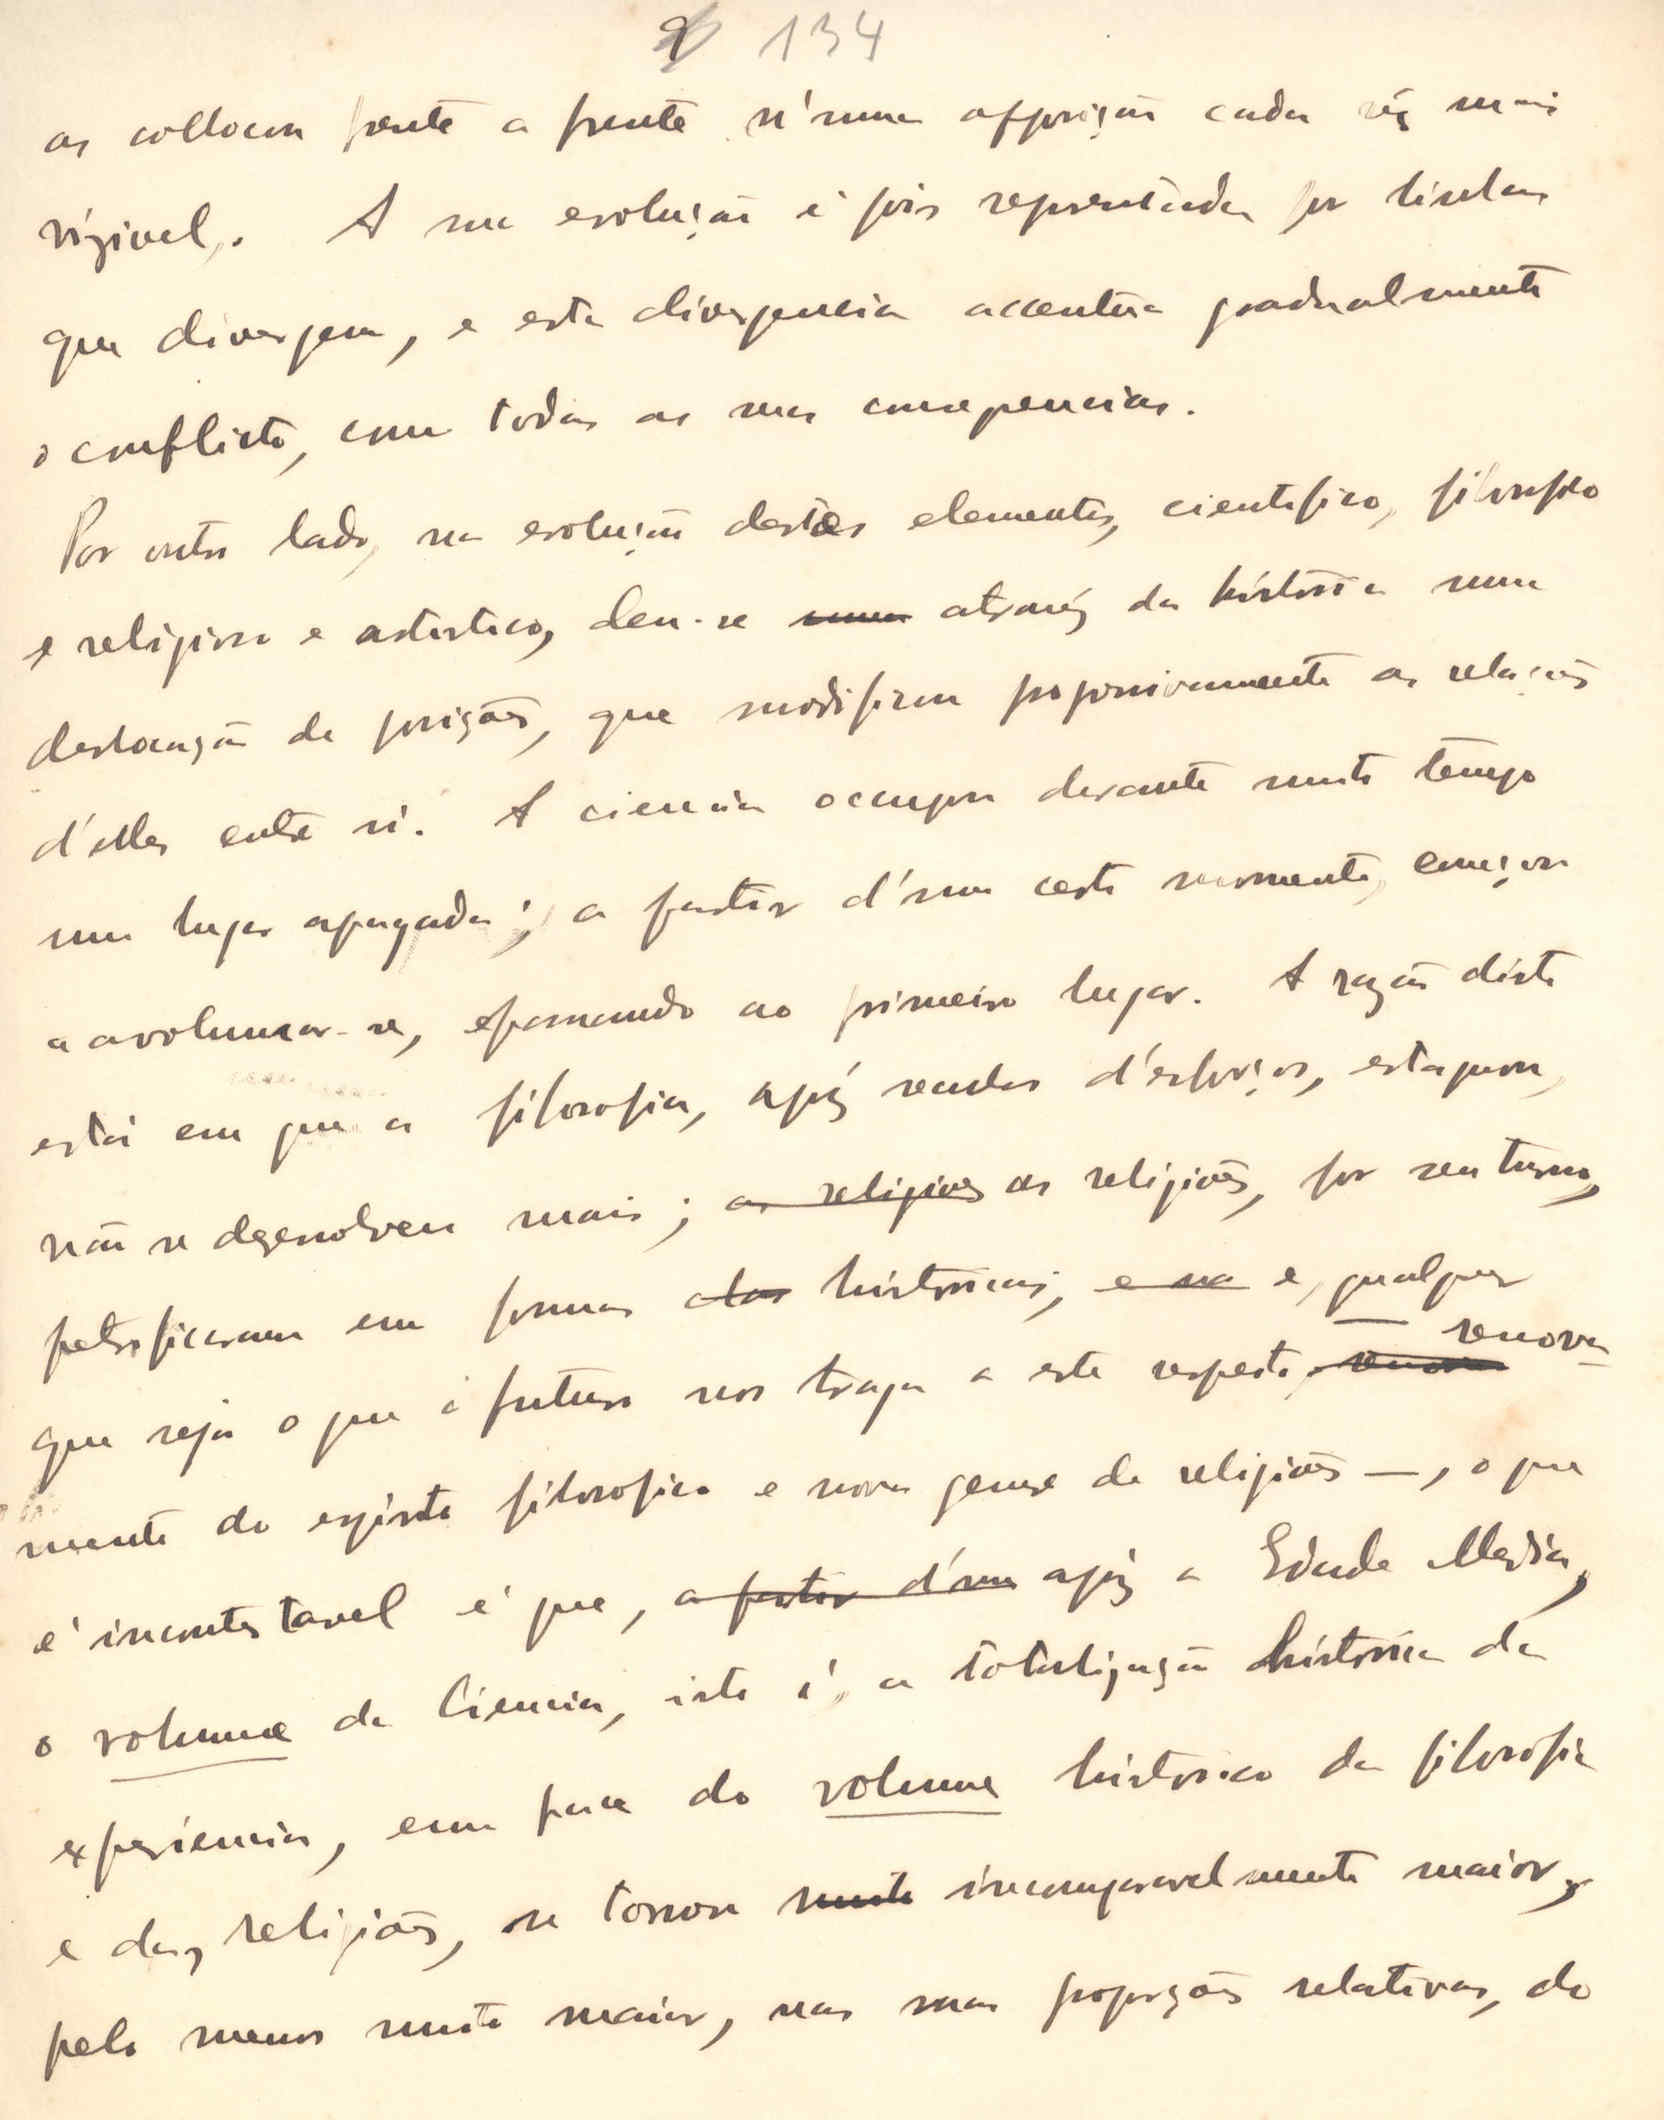 134
as collocam frente a frente n'uma opposição cada vez mais
vizivel. A sua evolução é pois representada por linhas
que divergem, e esta divergencia accentua gradualmente
o conflicto, com todas as suas consequencias.
Por outro lado, na evolução destes elementos, cientifico, filosofico
e religioso e artistico, deu-se ~~uma~~ atravéz da história uma
deslocação de posições, que modificou progressivamente as relações
d'elles entre si. A ciencia occupou durante muito tempo
um lugar apagado; a partir d'um certo momento, começou
a avolumar-se, passando ao primeiro lugar. A razão disto
está em que a filosofia, apóz seculos d'esforços, estagnou,
não se dezenvolveu mais; ~~as religiões~~ as religiões, por seu turno,
petrificaram em formas ~~das~~ históricas, ~~e na~~ e, qualquer
que seja o que o futuro nos traga a este respeito, ~~renova~~ renova-
mento do espirito filosofico e nova genese de religiões —, o que
é incontestavel é que, ~~a partir d'um~~ apóz a Edade Media,
o volume da Ciencia, isto é, a totalização historica da
experiencia, em face do volume historico da filosofia
e das religiões, se tornou ~~muito~~ incomparavelmente maior,
pelo menos muito maior, nas suas proporções relativas, do